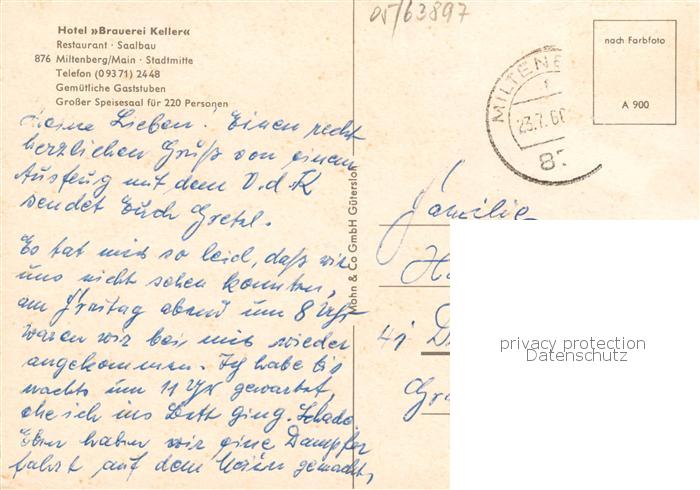 05/63897
Hotel »Brauerei Keller«
Restaurant · Saalbau
876 Miltenberg/Main · Stadtmitte
Telefon (09371) 2448
Gemütliche Gaststuben
Großer Speisesaal für 220 Personen
nach Farbfoto
A 900
MILTENBE
23.7.6
87
Meine Lieben! Einen recht
herzlichen Gruß von einem
Ausflug mit dem V.d.K
sendet Euch Gretl.
Es tat mir so leid, daß wir
uns nicht sehen konnten,
am Freitag abend um 8 Uhr
waren wir bei mir wieder
angekommen. Ich habe bis
nachts um 11 Uhr gewartet,
ehe ich ins Bett ging. Schade
Eben haben wir eine Dampfer
fahrt auf dem Main gemacht,
Mohn & Co GmbH Gütersloh
Familie
41 D
privacy protection
Datenschutz